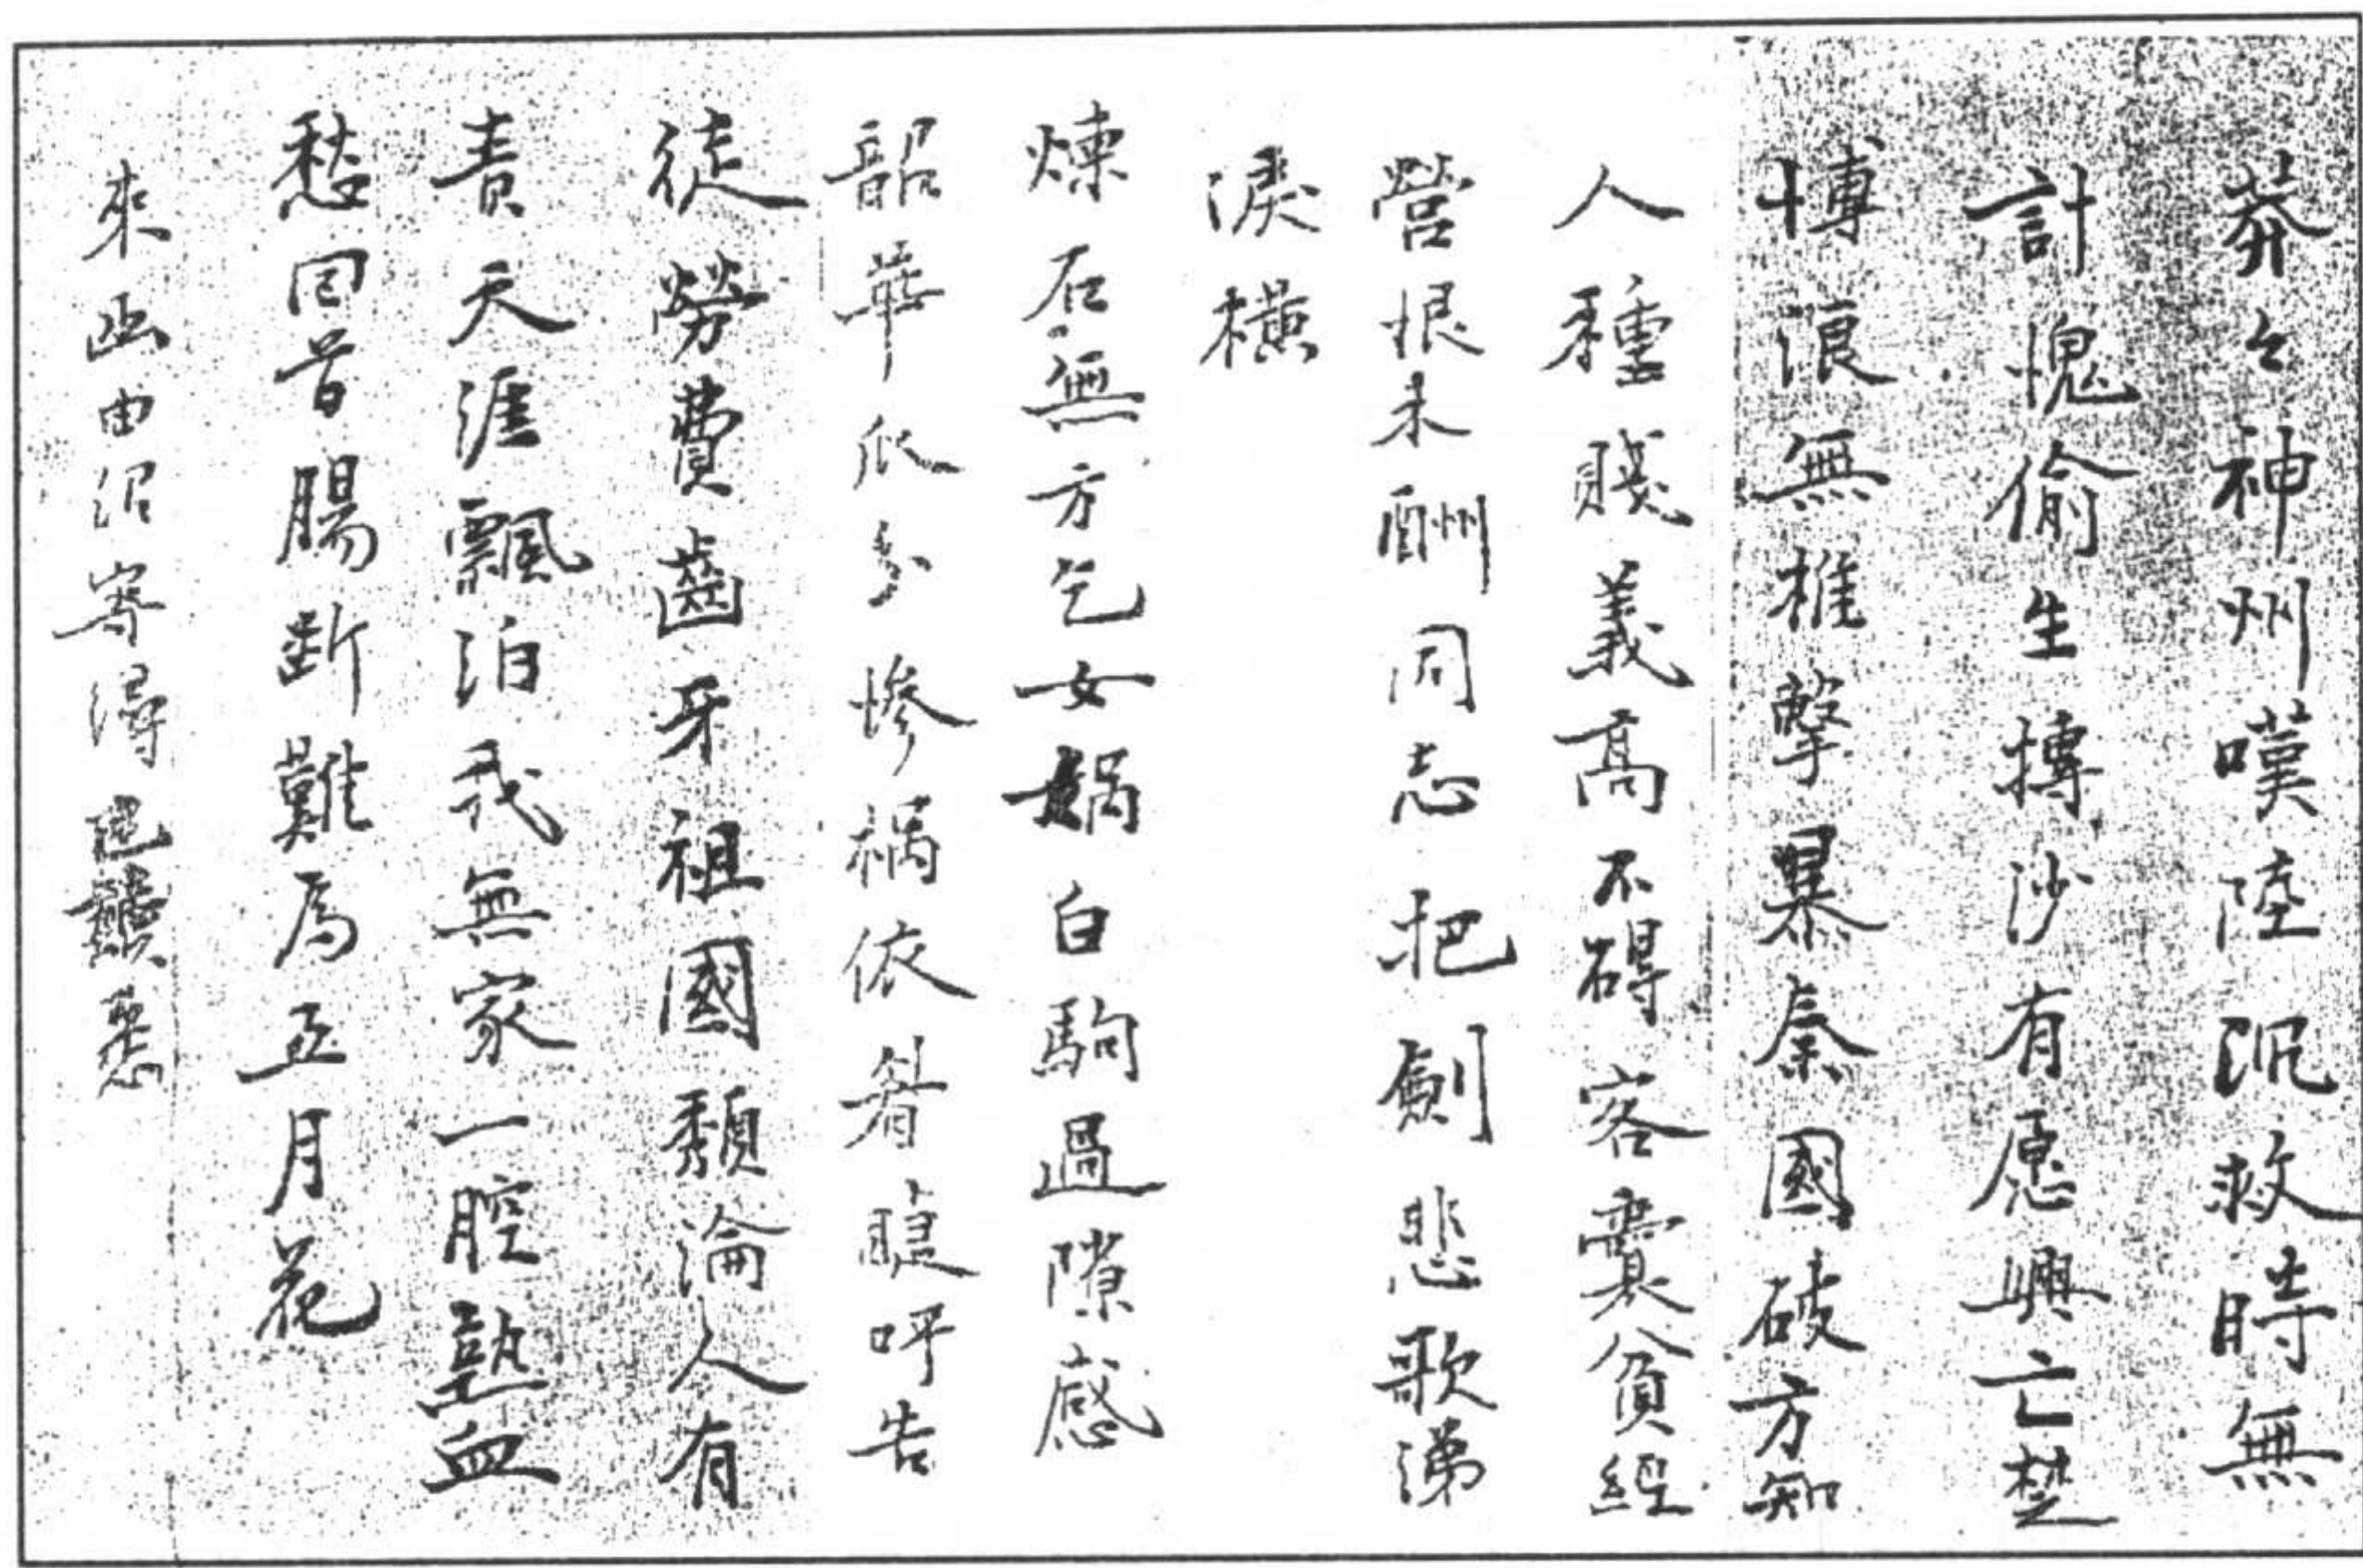 莽々神州嘆陸沉救時無
計愧偷生摶沙有愿興亡楚
博浪無椎擊暴秦國破方知
人種賤義高不碍客囊貧經
營恨未酬同志把劍悲歌涕
淚橫
煉石無方乞女媧白駒過隙感
韶華瓜分慘禍依眉睫呼告
徒勞費齒牙祖國頹淪人有
責天涯飄泊我無家一腔熱血
愁回首腸斷難為五月花
來函由沼寄得